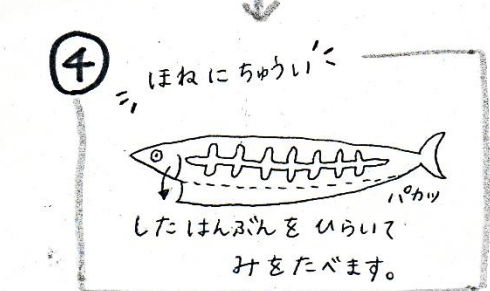 ④
ほねにちゅうい
パカッ
したはんぶんをひらいて
みをたべます。